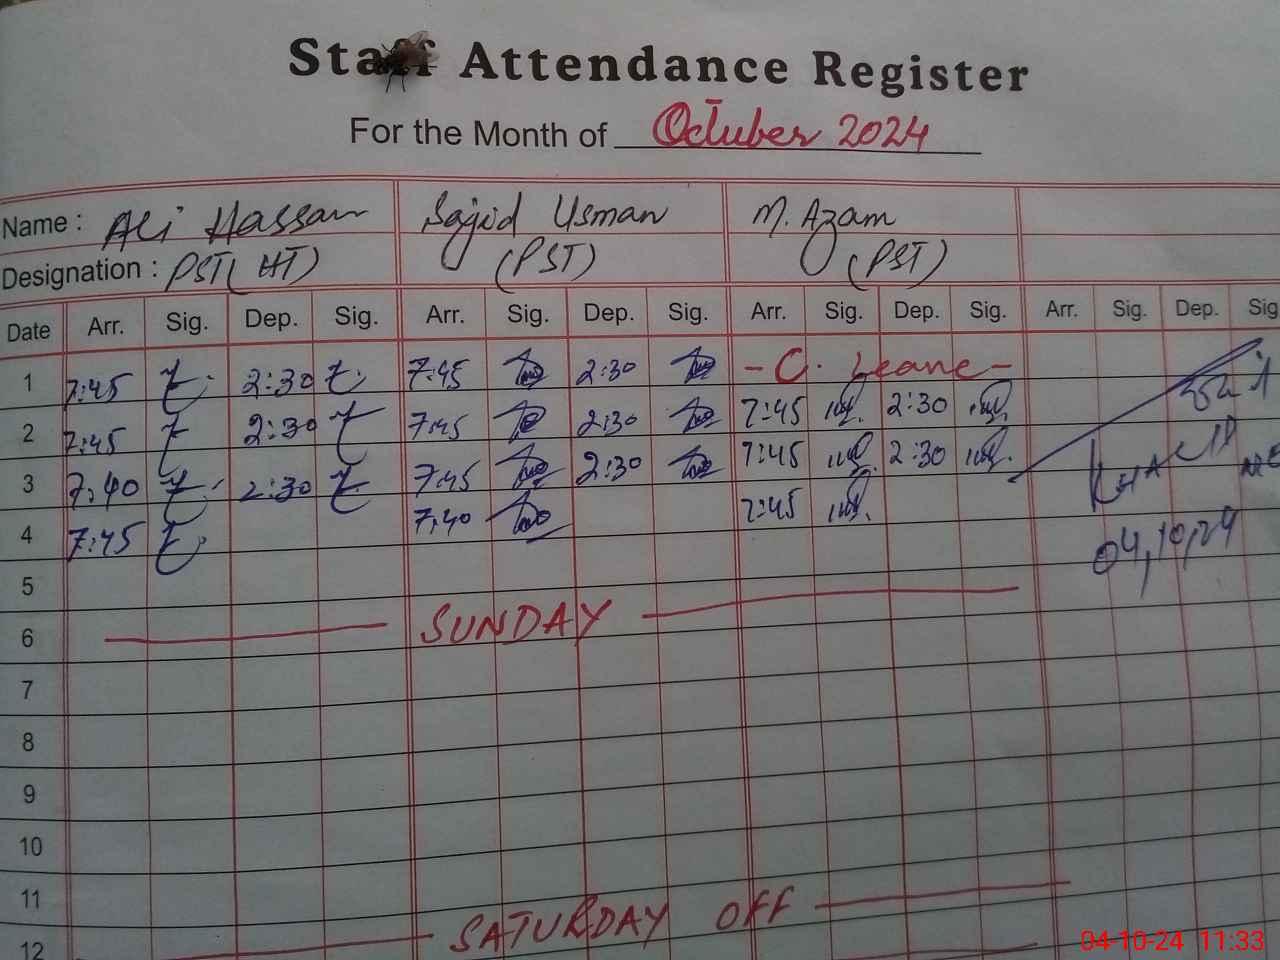 Staff Attendance Register
For the Month of October 2024
Name : Ali Hassan Sajid Usman M. Azam
Designation : PST(HT) (PST) (PST)
Date Arr. Sig. Dep. Sig. Arr. Sig. Dep. Sig. Arr. Sig. Dep. Sig. Arr. Sig. Dep. Sig
1 7:45 2:30 7:45 2:30 - C. Leave -
2 7:45 2:30 7:45 2:30 7:45 2:30
3 7:40 2:30 7:45 2:30 7:45 2:30
4 7:45 7:40 7:45
04,10,24
5
6 SUNDAY
7
8
9
10
11
12 SATURDAY OFF
04-10-24 11:33